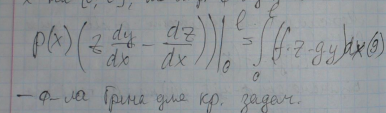 p(x)(z dy/dx - dz/dx))|₀^ℓ = ∫₀^ℓ (f·z-gy)dx (9)
- ф-ла Грина для кр. задач.